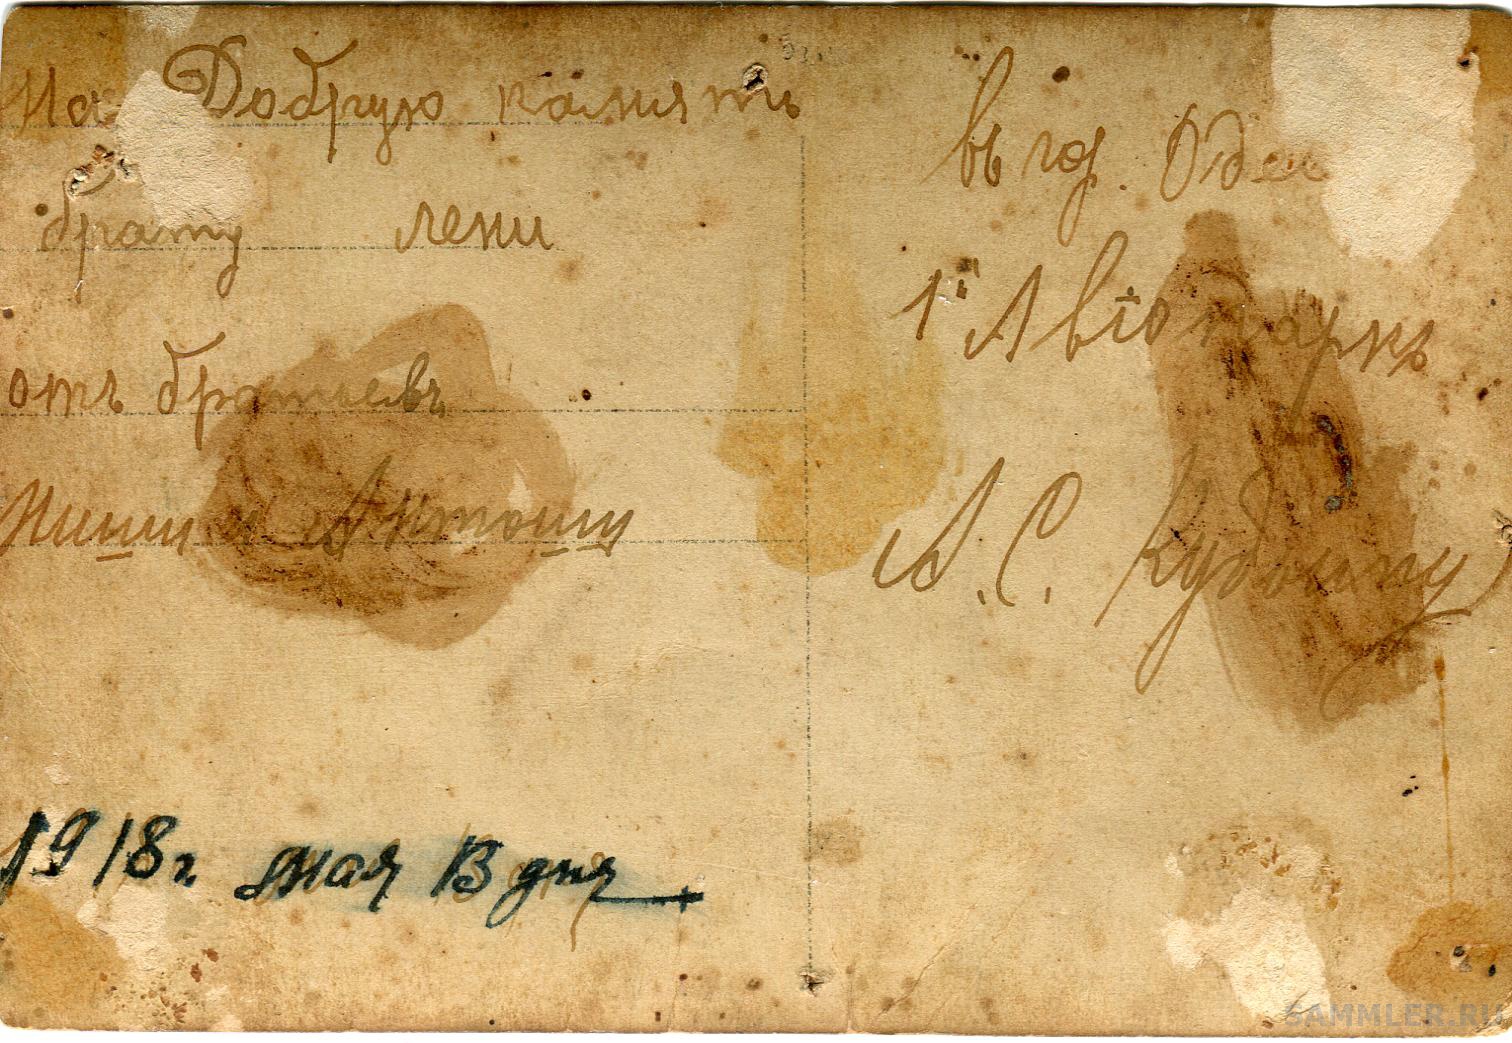 На Добрую память
брату лени
отъ братьевъ
Миши и Антоши
1918 г. мая 13 дня
въ гор. Одес
1й Авіопаркъ
А. С.
SAMMLER.RU